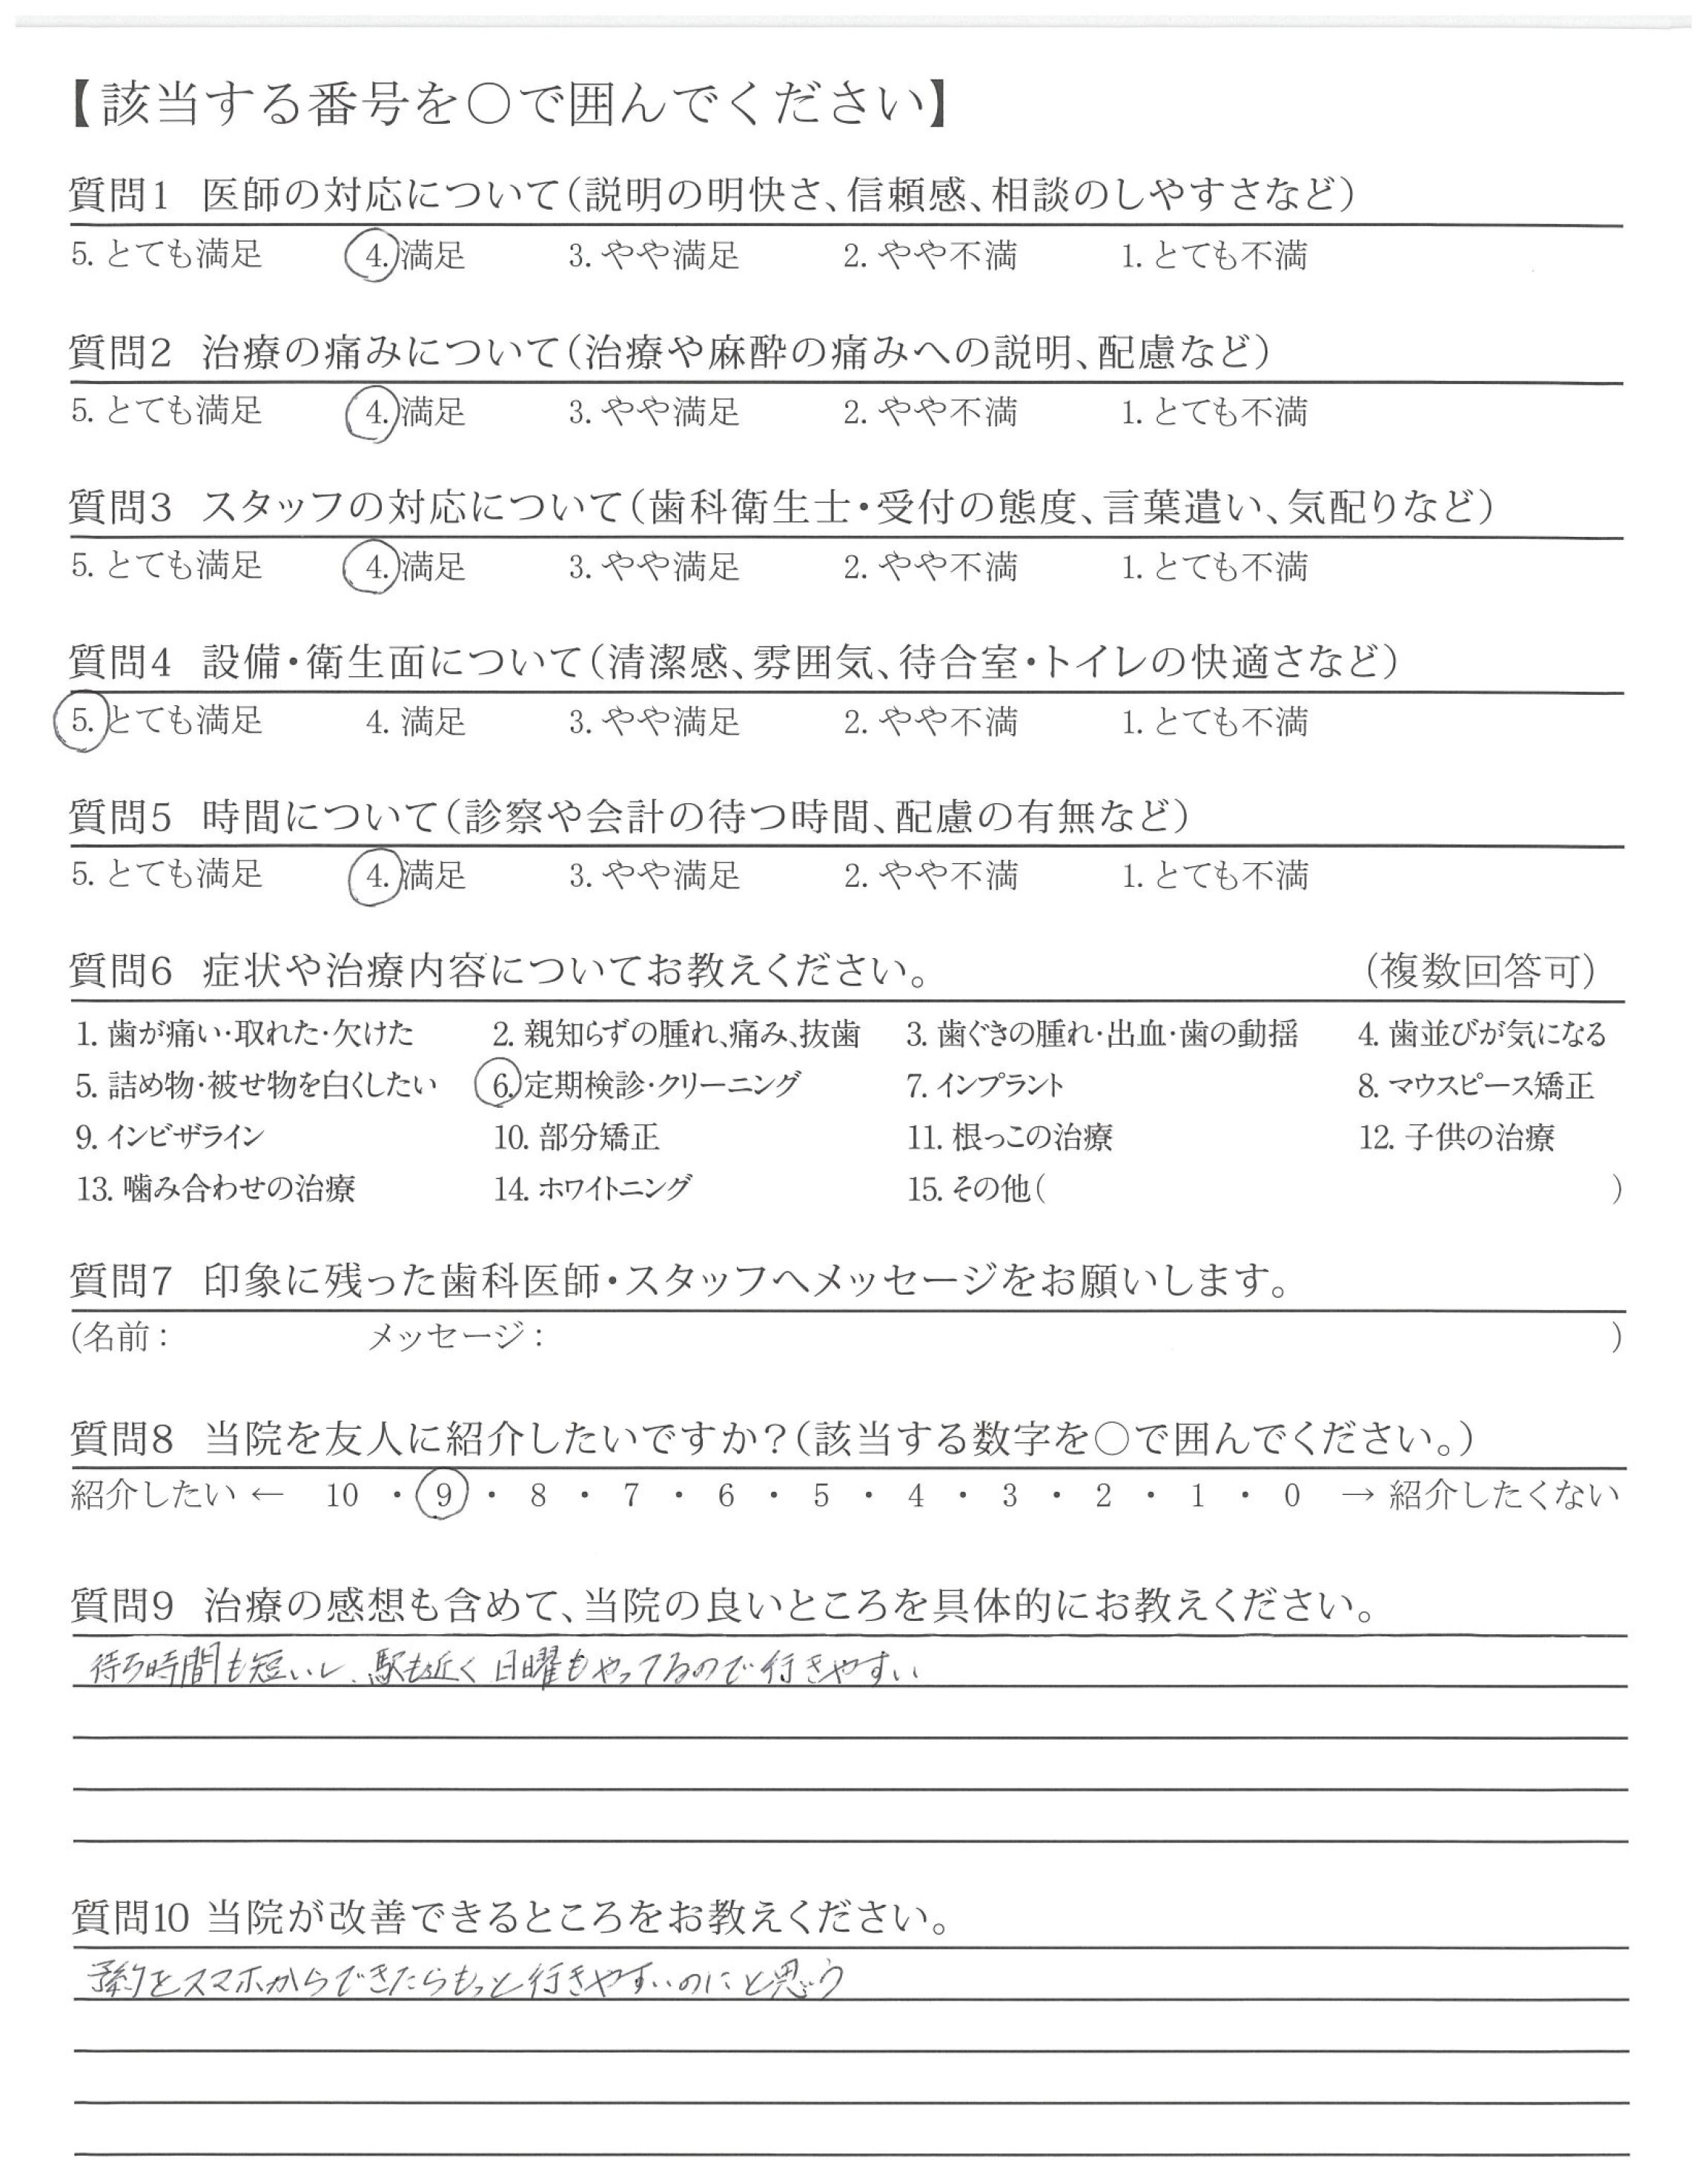 【該当する番号を○で囲んでください】
質問1 医師の対応について(説明の明快さ、信頼感、相談のしやすさなど)
5. とても満足 4. 満足 3. やや満足 2. やや不満 1. とても不満
質問2 治療の痛みについて(治療や麻酔の痛みへの説明、配慮など)
5. とても満足 4. 満足 3. やや満足 2. やや不満 1. とても不満
質問3 スタッフの対応について(歯科衛生士・受付の態度、言葉遣い、気配りなど)
5. とても満足 4. 満足 3. やや満足 2. やや不満 1. とても不満
質問4 設備・衛生面について(清潔感、雰囲気、待合室・トイレの快適さなど)
5. とても満足 4. 満足 3. やや満足 2. やや不満 1. とても不満
質問5 時間について(診察や会計の待つ時間、配慮の有無など)
5. とても満足 4. 満足 3. やや満足 2. やや不満 1. とても不満
質問6 症状や治療内容についてお教えください。 (複数回答可)
1. 歯が痛い・取れた・欠けた 2. 親知らずの腫れ、痛み、抜歯 3. 歯ぐきの腫れ・出血・歯の動揺 4. 歯並びが気になる
5. 詰め物・被せ物を白くしたい 6. 定期検診・クリーニング 7. インプラント 8. マウスピース矯正
9. インビザライン 10. 部分矯正 11. 根っこの治療 12. 子供の治療
13. 噛み合わせの治療 14. ホワイトニング 15. その他( )
質問7 印象に残った歯科医師・スタッフへメッセージをお願いします。
(名前: メッセージ: )
質問8 当院を友人に紹介したいですか?(該当する数字を○で囲んでください。)
紹介したい ← 10 ・ 9 ・ 8 ・ 7 ・ 6 ・ 5 ・ 4 ・ 3 ・ 2 ・ 1 ・ 0 → 紹介したくない
質問9 治療の感想も含めて、当院の良いところを具体的にお教えください。
待ち時間も短いし、駅も近く日曜もやってるので行きやすい
質問10 当院が改善できるところをお教えください。
予約をスマホからできたらもっと行きやすいのにと思う